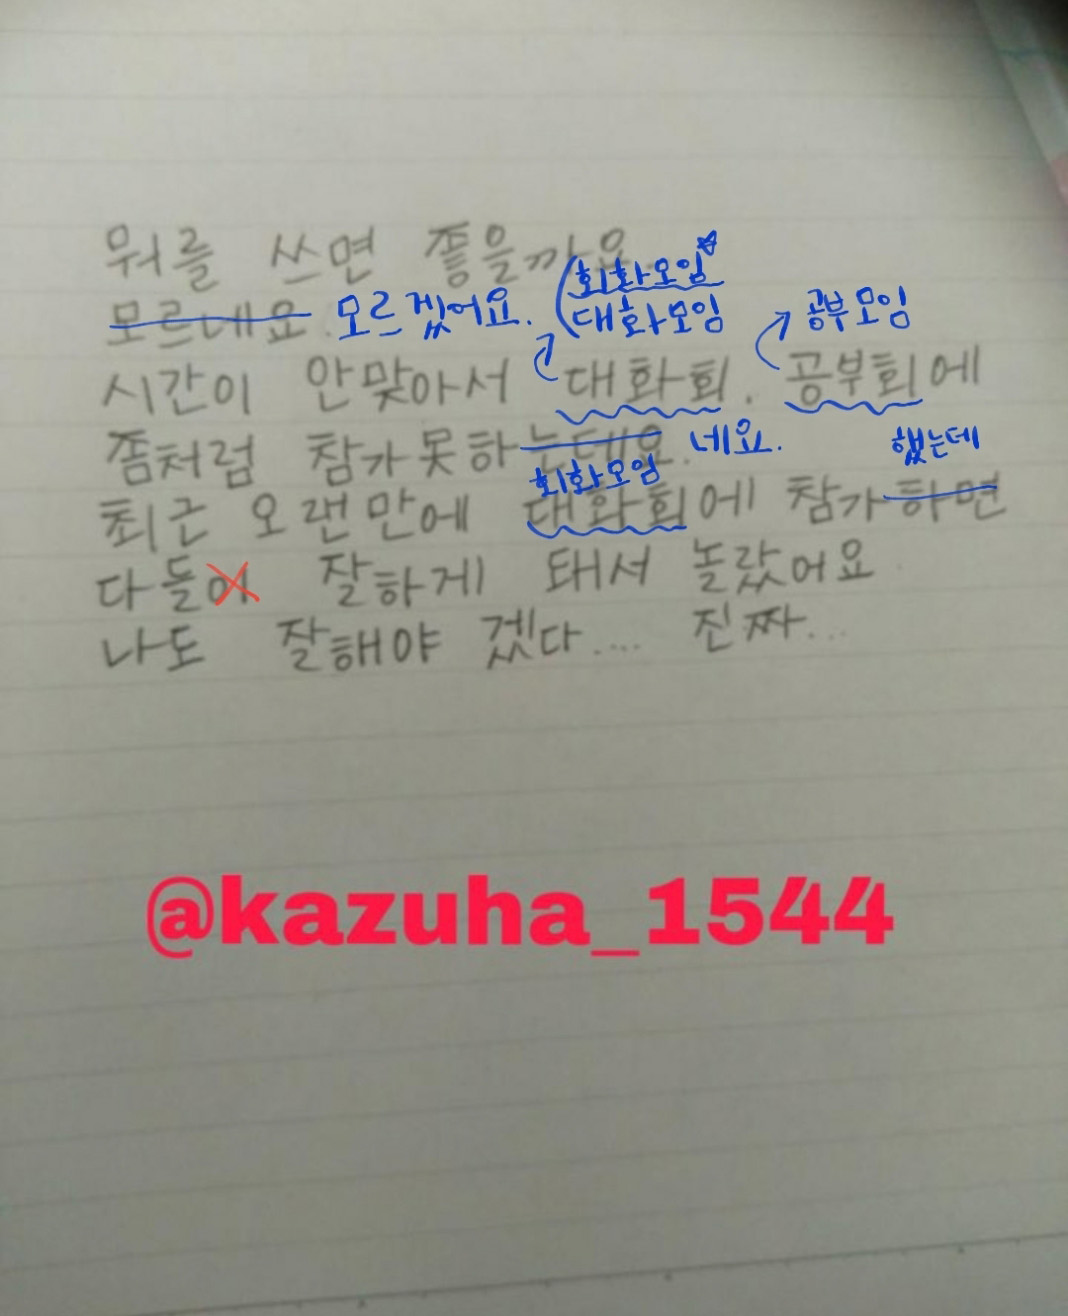 뭐를 쓰면 좋을까요.
모르네요. 모르겠어요. (회화모임
대화모임 공부모임
시간이 안맞아서 대화회. 공부회에
좀처럼 참가못하는데요. 네요. 했는데
회화모임
최근 오랜만에 대화회에 참가하면
다들이 잘하게 돼서 놀랐어요.
나도 잘해야 겠다.... 진짜...
@kazuha_1544